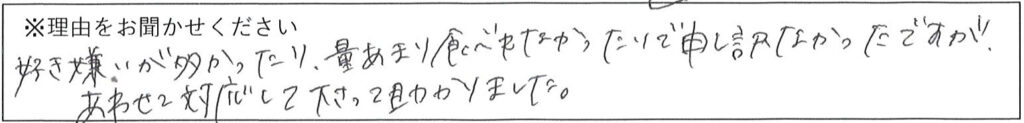 ※理由をお聞かせください
好き嫌いが多かったり、量あまり食べれなかったりで申し訳なかったですが、
あわせて対応して下さって助かりました。